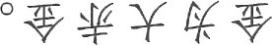 金为大亦金。